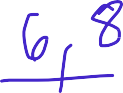 6, 8